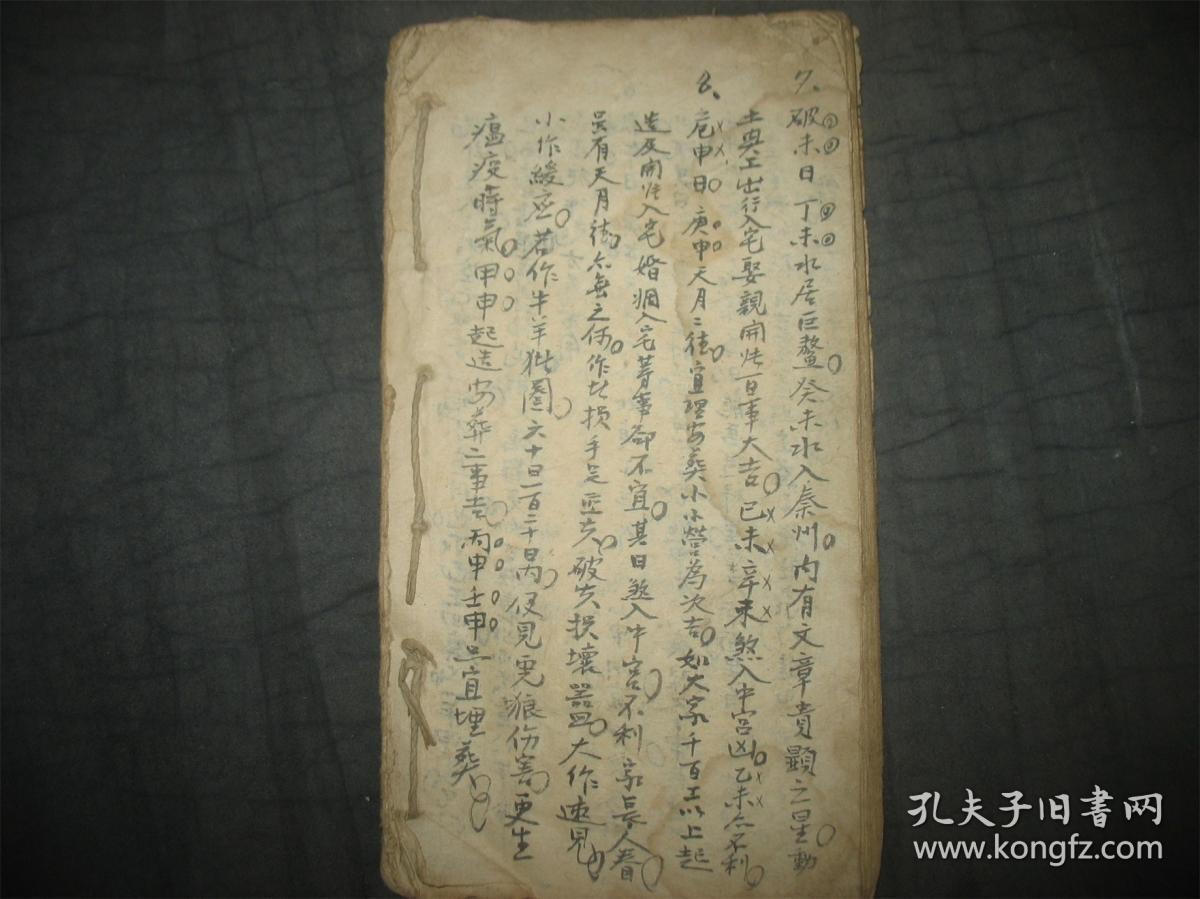 7、破未日 丁未水居巨鰲 癸未水入秦州 内有文章貴顯之星動
土興工出行入宅娶親開张百事大吉 己未辛未煞入中宫凶 乙未亦不利
8、危申日 庚申天月二德 宜埋安葬小小營為次吉 如大家千百工以上起
造及開张入宅婚姻入宅等事都不宜 其日煞入中宫 不利家長人眷
有天月德亦無之何 作 损手足 破 损壞器皿 大作速見
小作緩应 若作牛羊 圈 六十日一百二十日内 便見 狼伤害 更生
瘟疫時氣 甲申起造安葬二事吉 丙申壬申 宜埋葬
孔夫子旧书网
www.kongfz.com